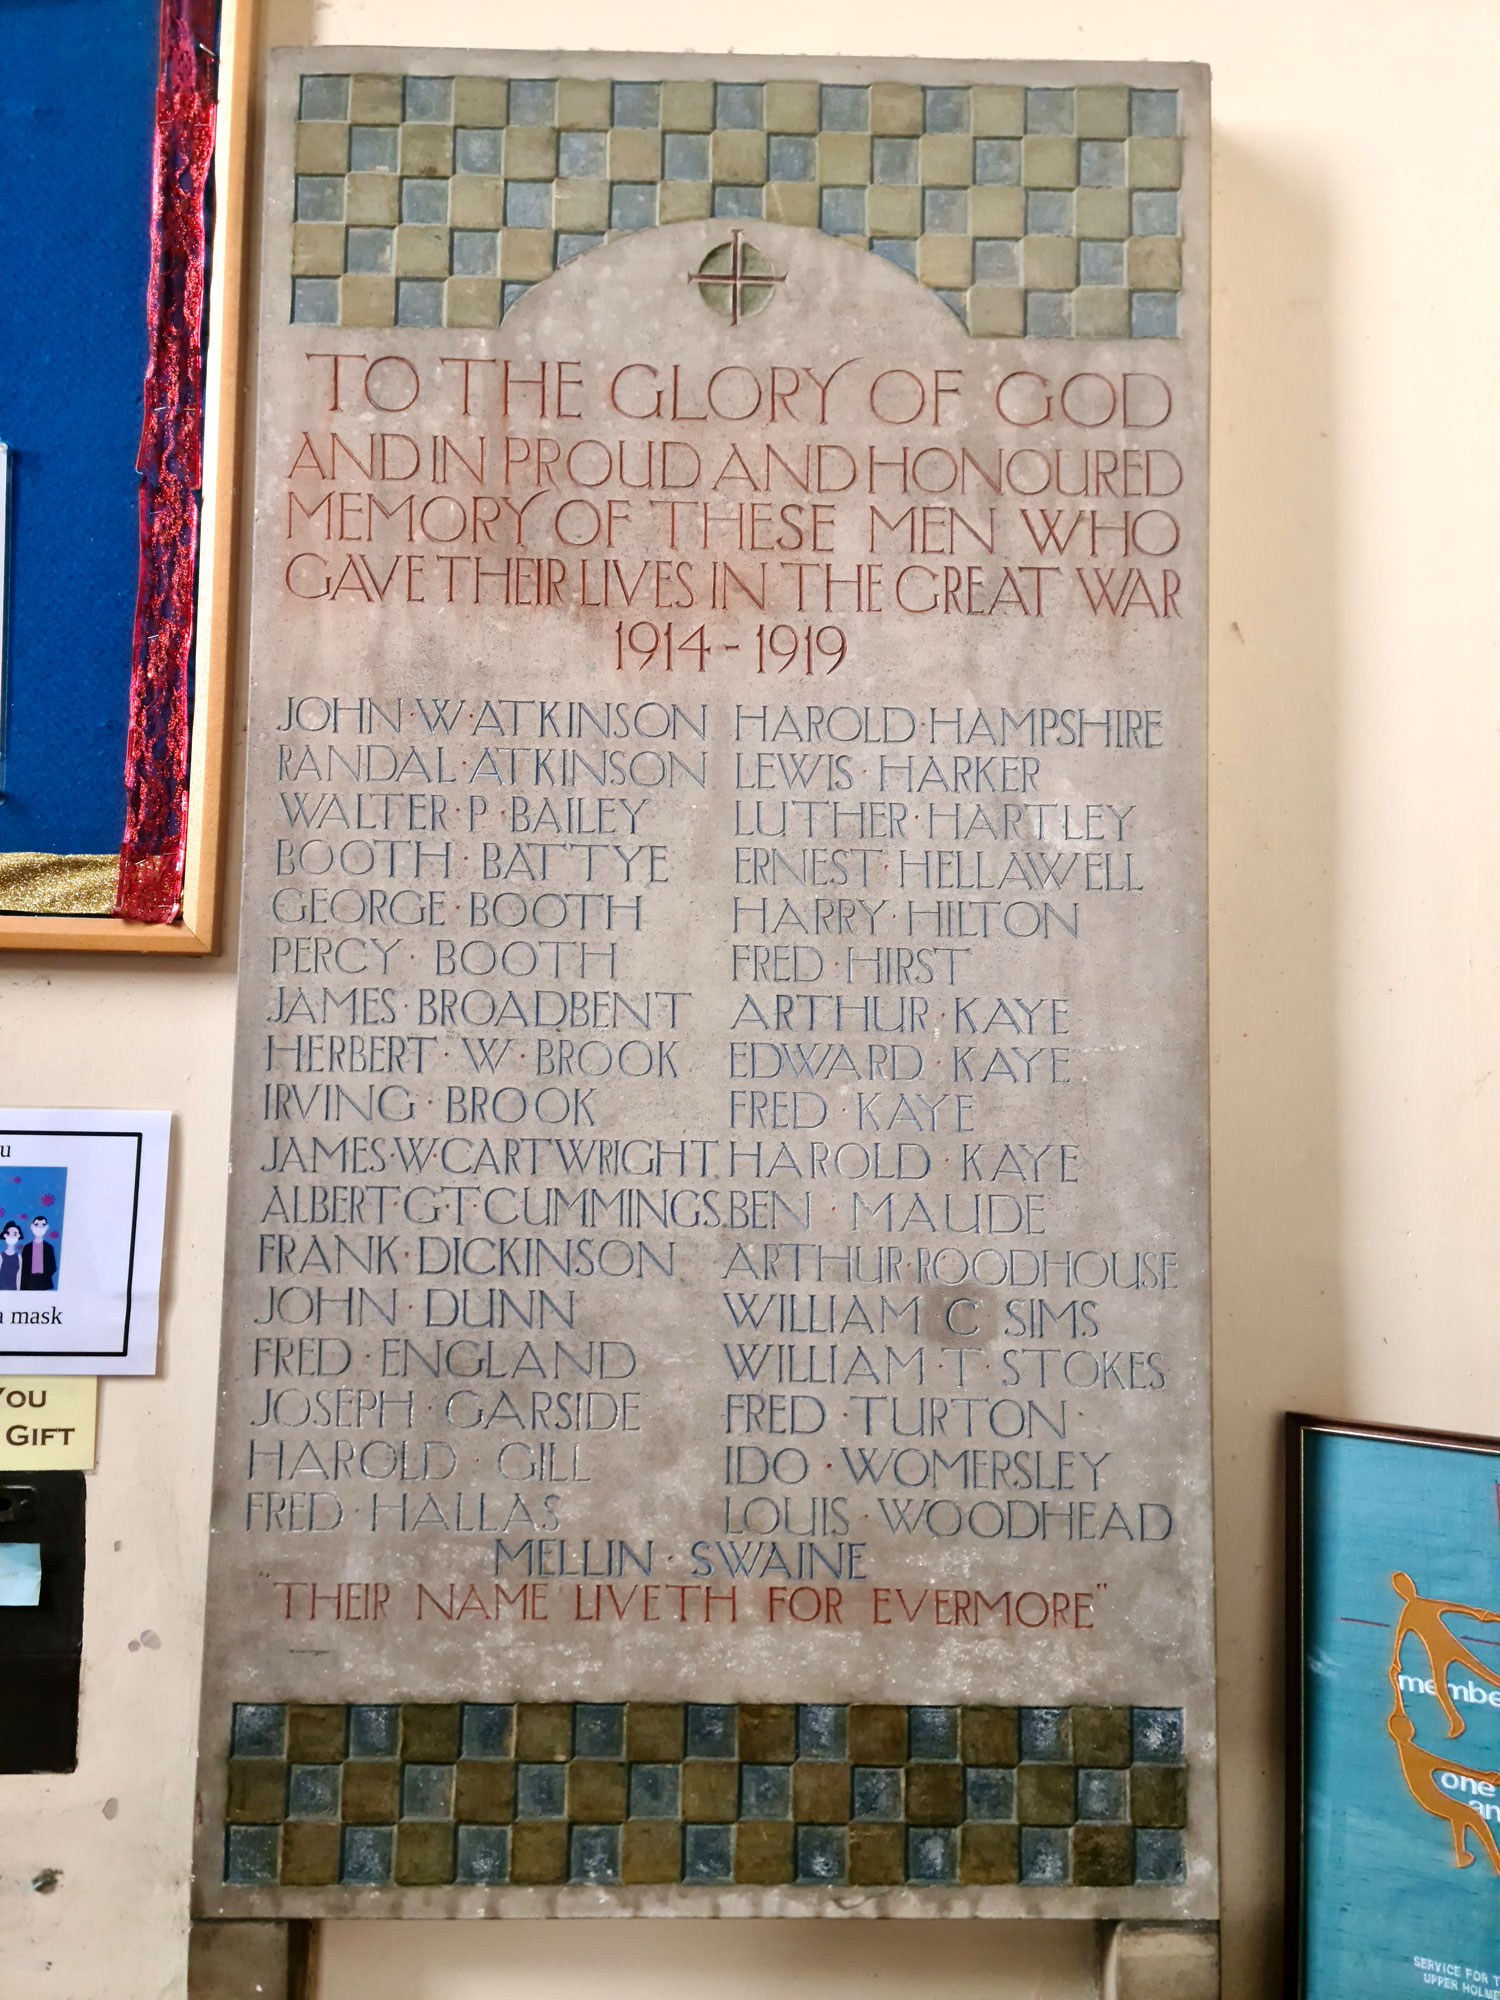 TO THE GLORY OF GOD
AND IN PROUD AND HONOURED
MEMORY OF THESE MEN WHO
GAVE THEIR LIVES IN THE GREAT WAR
1914-1919
JOHN·W·ATKINSON
RANDAL·ATKINSON
WALTER·P·BAILEY
BOOTH·BATTYE
GEORGE·BOOTH
PERCY·BOOTH
JAMES·BROADBENT
HERBERT·W·BROOK
IRVING·BROOK
JAMES·W·CARTWRIGHT.
ALBERT·G·T·CUMMINGS.
FRANK·DICKINSON
JOHN·DUNN
FRED·ENGLAND
JOSEPH·GARSIDE
HAROLD·GILL
FRED·HALLAS
HAROLD·HAMPSHIRE
LEWIS·HARKER
LUTHER·HARTLEY
ERNEST·HELLAWELL
HARRY·HILTON
FRED·HIRST
ARTHUR·KAYE
EDWARD·KAYE
FRED·KAYE
HAROLD·KAYE
BEN·MAUDE
ARTHUR·ROODHOUSE
WILLIAM C SIMS
WILLIAM·T·STOKES
FRED·TURTON
IDO·WOMERSLEY
LOUIS·WOODHEAD
MELLIN·SWAINE
"THEIR NAME LIVETH FOR EVERMORE"
u
a mask
YOU
GIFT
membe
one
an
SERVICE FOR T
UPPER HOLME